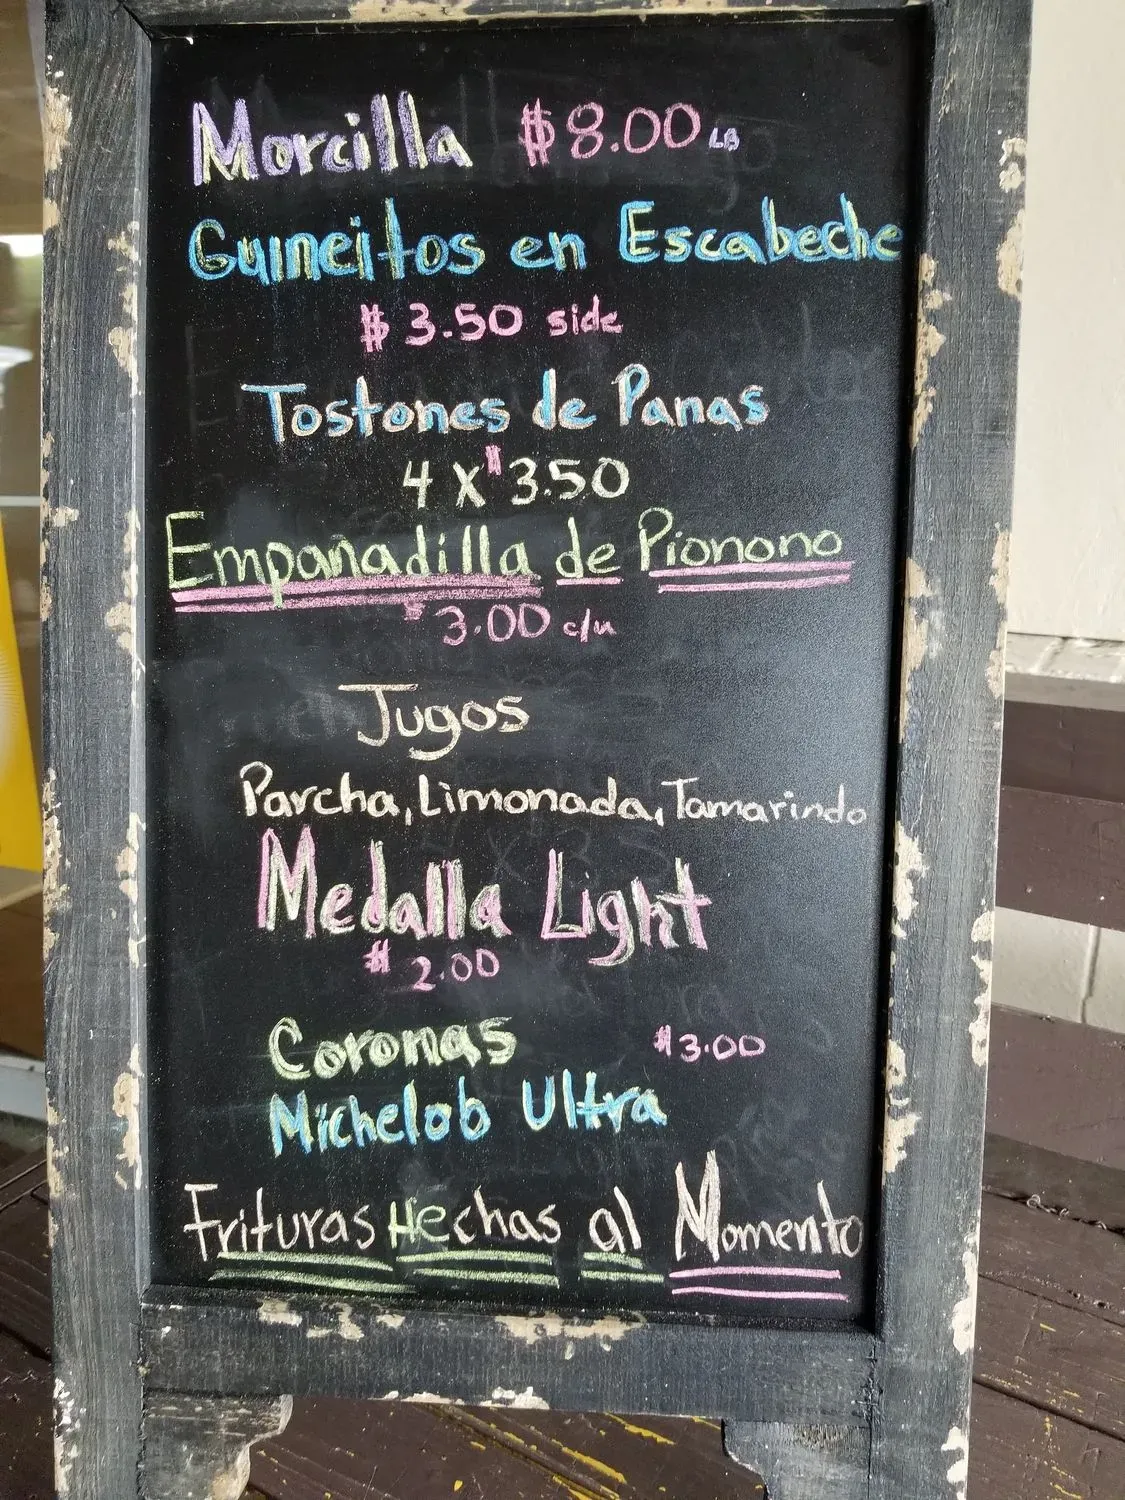 Morcilla $8.00 LB
Guineitos en Escabeche
$3.50 side
Tostones de Panas
4 X $3.50
Empanadilla de Pionono
$3.00 c/u
Jugos
Parcha, Limonada, Tamarindo
Medalla Light
$2.00
Coronas $3.00
Michelob Ultra
Frituras Hechas al Momento